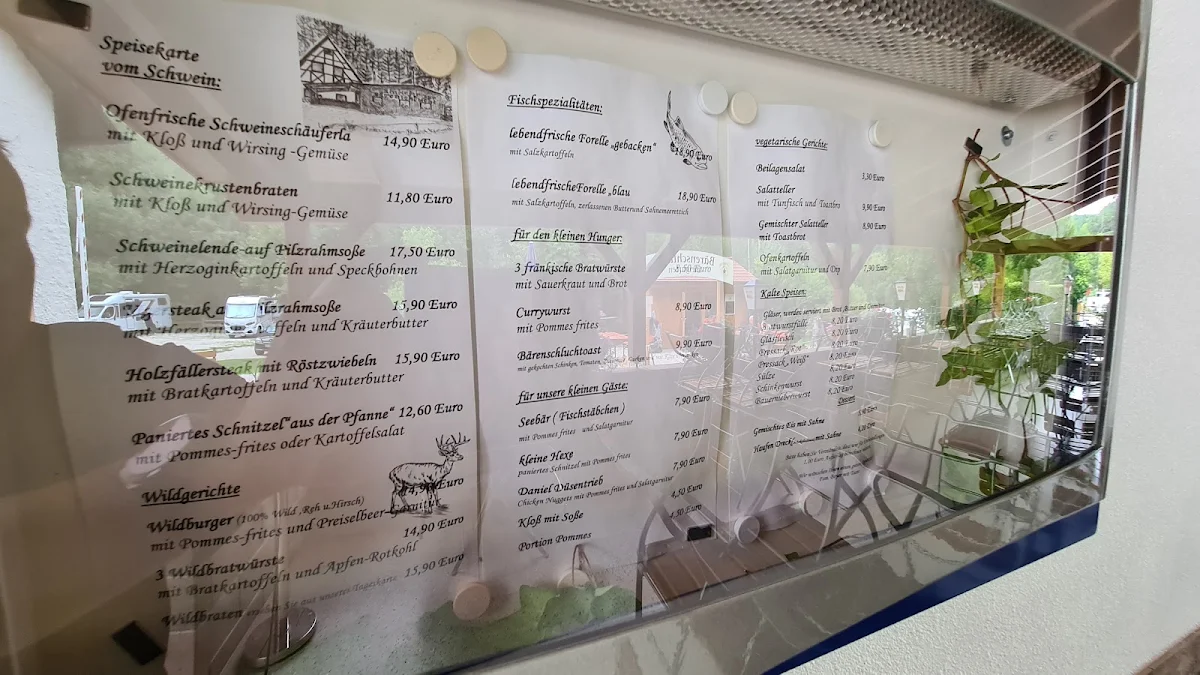 Speisekarte
vom Schwein:
Ofenfrische Schweineschäuferla
mit Kloß und Wirsing -Gemüse 14,90 Euro
Schweinekrustenbraten
mit Kloß und Wirsing-Gemüse 11,80 Euro
Schweinelende-auf Pilzrahmsoße 17,50 Euro
mit Herzoginkartoffeln und Speckbohnen
steak a Pilzrahmsoße 15,90 Euro
mit Herzogin ffeln und Kräuterbutter
Holzfällersteak mit Röstzwiebeln 15,90 Euro
mit Bratkartoffeln und Kräuterbutter
Paniertes Schnitzel"aus der Pfanne" 12,60 Euro
mit Pommes-frites oder Kartoffelsalat
Wildgerichte
Wildburger (100% Wild , Reh u.Hirsch) 14,90 Euro
mit Pommes-frites und Preiselbeer-Garnitur
3 Wildbratwürste 14,90 Euro
mit Bratkartoffeln und Apfen-Rotkohl
Wildbraten Sie aus unserer Tageskarte 15,90 Euro
Fischspezialitäten:
lebendfrische Forelle „gebacken" 18,90 Euro
mit Salzkartoffeln
lebendfrischeForelle „blau 18,90 Euro
mit Salzkartoffeln, zerlassenen Butterund Sahnemeerrettich
für den kleinen Hunger:
3 fränkische Bratwürste
mit Sauerkraut und Brot
Currywurst 8,90 Euro
mit Pommes frites
Bärenschluchtoast 9,90 Euro
mit gekochten Schinken, Tomaten,
für unsere kleinen Gäste:
Seebär ( Fischstäbchen ) 7,90 Euro
mit Pommes frites und Salatgarnitur
kleine Hexe 7,90 Euro
paniertes Schnitzel mit Pommes frites
Daniel Düsentrieb 7,90 Euro
Chicken Nuggets mit Pommes frites und Salatgarnitur
Kloß mit Soße 4,50 Euro
Portion Pommes 4,50 Euro
vegetarische Gerichte:
Beilagensalat 3,30 Euro
Salatteller
mit Tunfisch und Toastbro 9,90 Euro
Gemischter Salatteller 8,90 Euro
mit Toastbrot
Ofenkartoffeln
mit Salatgarnitur und Dip 7,90 Euro
Kalte Speisen:
Gläser, werden serviert mit Brot, Butter und Garnitur
8,20 Euro
Glasfleisch 8,20 Euro
Pressack „Rot" 8,20 Euro
Pressack „Weiß" 8,20 Euro
Sülze 8,20 Euro
Schinkenwurst 8,20 Euro
Bauernleberwurst 8,20 Euro
Dessert
Gemischtes Eis mit Sahne
Haufen Dreck mit Sahne